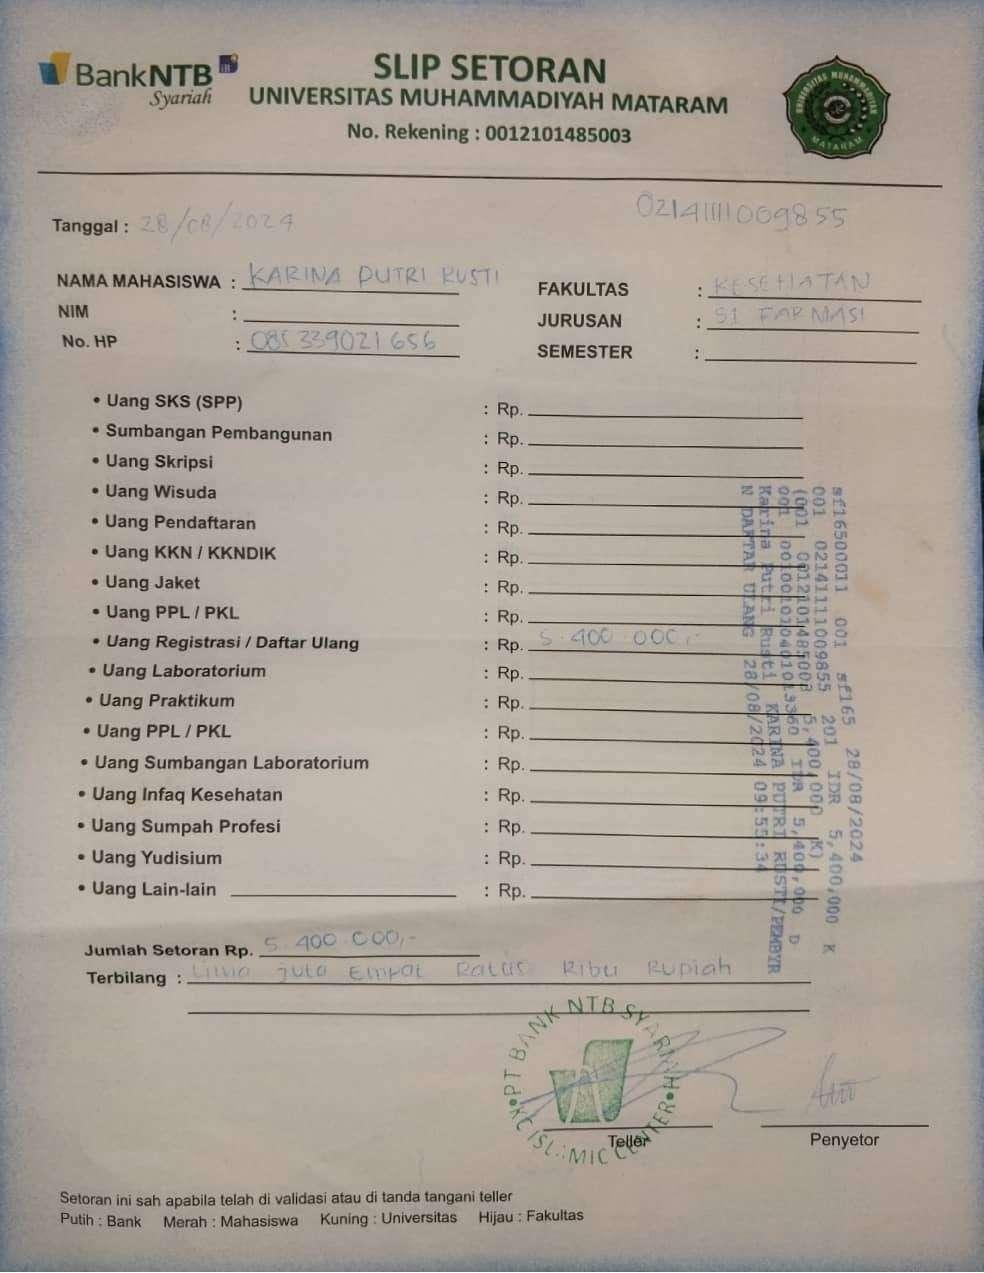 BankNTB
Syariah
SLIP SETORAN
UNIVERSITAS MUHAMMADIYAH MATARAM
No. Rekening : 0012101485003
UNIVERSITAS MUHAMMADIYAH
MATARAM
Tanggal : 28/08/2024
02141111009855
NAMA MAHASISWA : KARINA PUTRI RUSTI
NIM :
No. HP : 085 339021 656
FAKULTAS : KESEHATAN
JURUSAN : S1 FARMASI
SEMESTER :
• Uang SKS (SPP) : Rp.
• Sumbangan Pembangunan : Rp.
• Uang Skripsi : Rp.
• Uang Wisuda : Rp.
• Uang Pendaftaran : Rp.
• Uang KKN / KKNDIK : Rp.
• Uang Jaket : Rp.
• Uang PPL / PKL : Rp.
• Uang Registrasi / Daftar Ulang : Rp. 5.400.000,-
• Uang Laboratorium : Rp.
• Uang Praktikum : Rp.
• Uang PPL / PKL : Rp.
• Uang Sumbangan Laboratorium : Rp.
• Uang Infaq Kesehatan : Rp.
• Uang Sumpah Profesi : Rp.
• Uang Yudisium : Rp.
• Uang Lain-lain : Rp.
sf16500011 001 sf165 28/08/2024
001 02141111009855 201 IDR 5,400,000 K
(001 0012101485003 5,400,000 K)
001 001001010401013360 IDR 5,400,000 D
Karina Putri Rusti KARINA PUTRI RUSTI/PEMBYR
N DAFTAR ULANG 28/08/2024 09:55:34
Jumlah Setoran Rp. 5.400.000,-
Terbilang : Lima juta Empat Ratus Ribu Rupiah
PT BANK NTB SYARIAH
KC ISLAMIC CENTER
Teller
Penyetor
Setoran ini sah apabila telah di validasi atau di tanda tangani teller
Putih : Bank Merah : Mahasiswa Kuning : Universitas Hijau : Fakultas